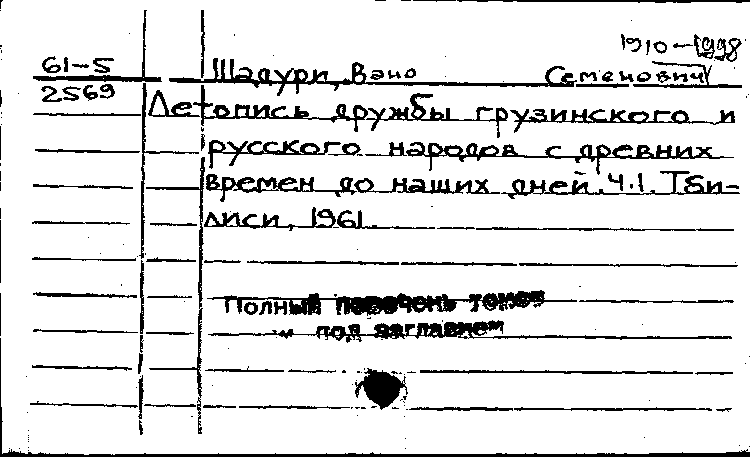 1910-1998
61-5 Шадури, Вано Семенович
2569 Летопись дружбы грузинского и
русского народов с древних
времен до наших дней. Ч.1. Тби-
лиси, 1961.
Полный перечень томов
см под заглавием